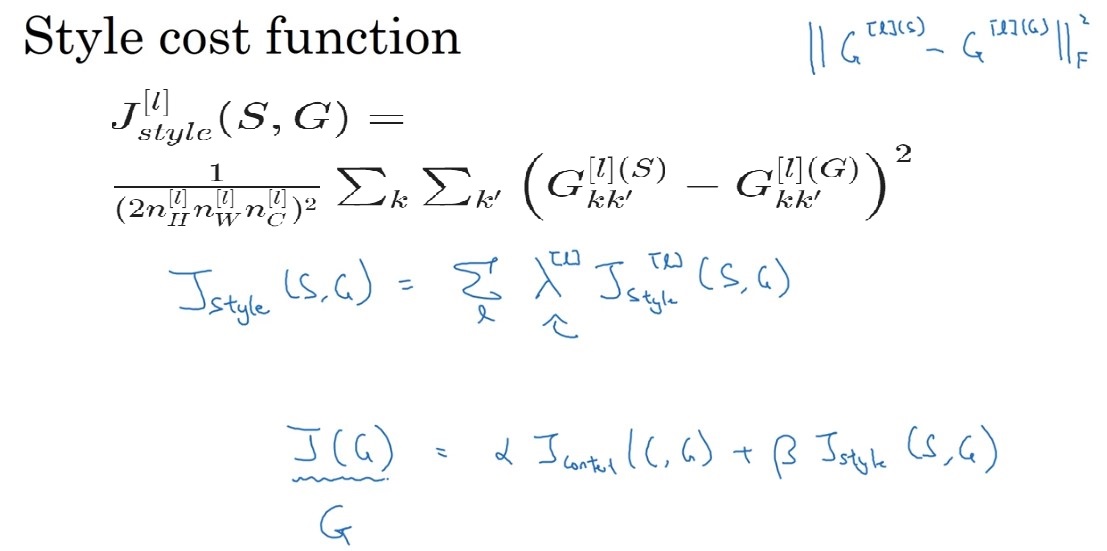 Style cost function
‖ G^{[l](S)} − G^{[l](G)} ‖_F^2
J_{style}^{[l]}(S, G) =
\frac{1}{(2n_H^{[l]} n_W^{[l]} n_C^{[l]})^2} ∑_k ∑_{k'} (G_{kk'}^{[l](S)} − G_{kk'}^{[l](G)})^2
J_{style}(S,G) = ∑_l λ^{[l]} J_{style}^{[l]}(S,G)
J(G) = α J_{content}(C,G) + β J_{style}(S,G)
G